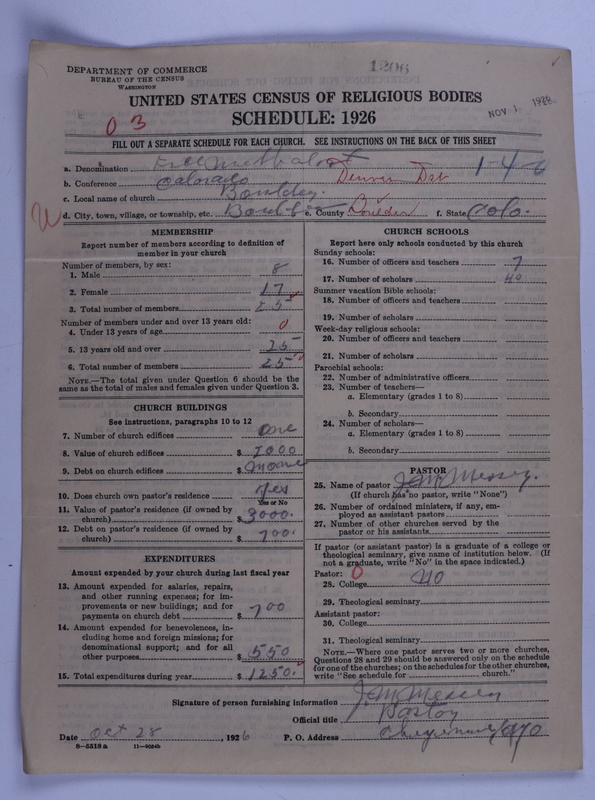 1206
DEPARTMENT OF COMMERCE
BUREAU OF THE CENSUS
WASHINGTON
UNITED STATES CENSUS OF RELIGIOUS BODIES
SCHEDULE: 1926
NOV 1 1926
03
FILL OUT A SEPARATE SCHEDULE FOR EACH CHURCH. SEE INSTRUCTIONS ON THE BACK OF THIS SHEET
a. Denomination Free Methodist 1-4
b. Conference Colorado Denver Dst
c. Local name of church Boulder.
W d. City, town, village, or township, etc. Boulder e. County Boulder f. State Colo.
MEMBERSHIP
Report number of members according to definition of
member in your church
Number of members, by sex:
1. Male 8
2. Female 17
3. Total number of members 25
Number of members under and over 13 years old:
4. Under 13 years of age 0
5. 13 years old and over 25
6. Total number of members 25
NOTE.—The total given under Question 6 should be
same as the total of males and females given under Question 3.
CHURCH BUILDINGS
See instructions, paragraphs 10 to 12
7. Number of church edifices one
8. Value of church edifices $ 7000
9. Debt on church edifices $ none
10. Does church own pastor's residence yes
Yes or No
11. Value of pastor's residence (if owned by
church) $ 3000.
12. Debt on pastor's residence (if owned by
church) $ 700.
EXPENDITURES
Amount expended by your church during last fiscal year
13. Amount expended for salaries, repairs,
and other running expenses; for im-
provements or new buildings; and for
payments on church debt $ 700
14. Amount expended for benevolences, in-
cluding home and foreign missions; for
denominational support; and for all
other purposes $ 550
15. Total expenditures during year $ 1250.
CHURCH SCHOOLS
Report here only schools conducted by this church
Sunday schools:
16. Number of officers and teachers 7
17. Number of scholars 40
Summer vacation Bible schools:
18. Number of officers and teachers
19. Number of scholars
Week-day religious schools:
20. Number of officers and teachers
21. Number of scholars
Parochial schools:
22. Number of administrative officers
23. Number of teachers—
a. Elementary (grades 1 to 8)
b. Secondary
24. Number of scholars—
a. Elementary (grades 1 to 8)
b. Secondary
PASTOR
25. Name of pastor
(If church has no pastor, write "None")
26. Number of ordained ministers, if any, em-
ployed as assistant pastors
27. Number of other churches served by the
pastor or his assistants
If pastor (or assistant pastor) is a graduate of a college or
theological seminary, give name of institution below. (If
not a graduate, write "No" in the space indicated.)
Pastor: 0
28. College No
29. Theological seminary
Assistant pastor:
30. College
31. Theological seminary
NOTE.—Where one pastor serves two or more churches,
Questions 28 and 29 should be answered only on the schedule
for one of the churches; on the schedules for the other churches,
write "See schedule for church."
Signature of person furnishing information
Official title Pastor
Date Oct 28, 1926 P. O. Address Cheyenne, Wyo
8-5518a 11-9024b